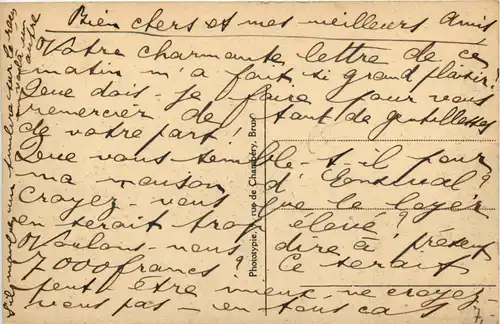 Bien chers et mes meilleurs Amis
Votre charmante lettre de ce
matin m'a fait si grand plaisir!
Que dois-je faire pour vous
remercier de tant de gentillesses
de votre part!
Que vous semble-t-il pour
ma maison d'
Croyez-vous que le loyer
en serait trop élevé?
Voulons-nous dire à présent
7000 francs? Ce serait
peut être mieux, ne croyez-
vous pas - en tous cas
Phototypie, rue de Chambéry, Bron
S'il manque un timbre sur le
en voilà un
autre
7,-